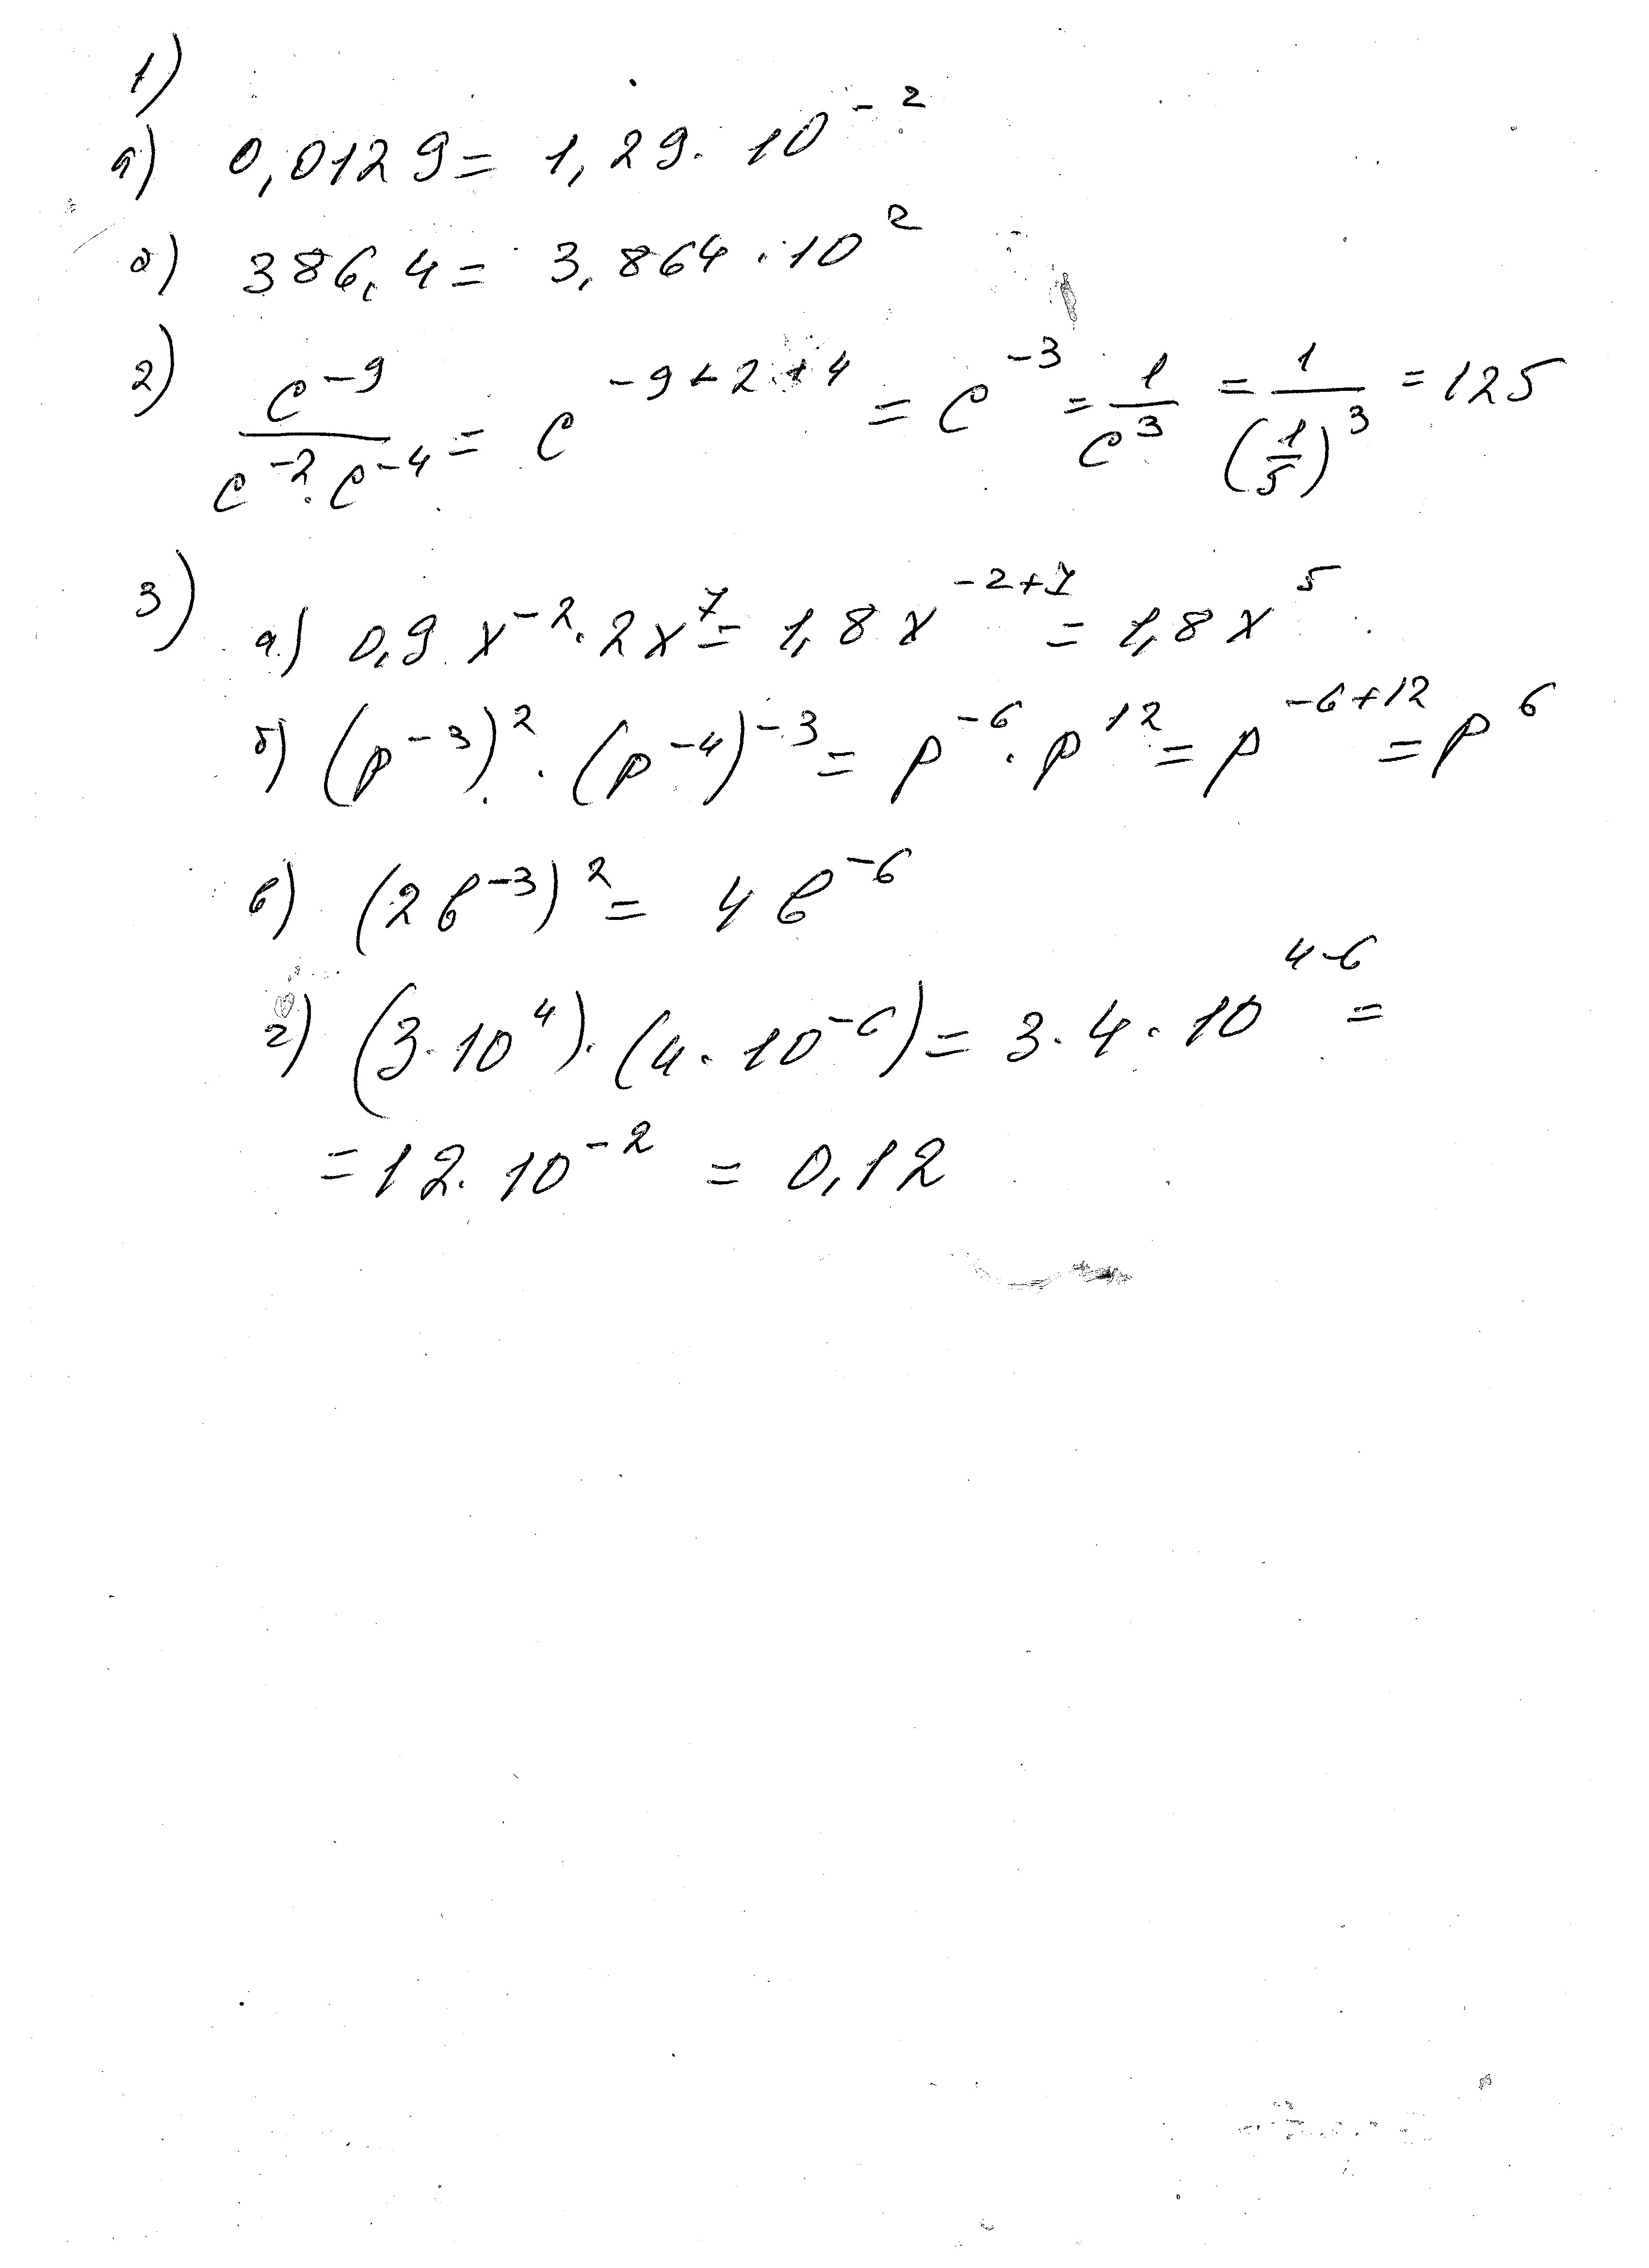 1)
а) 0,0129 = 1,29 · 10⁻²
б) 386,4 = 3,864 · 10²
2) c⁻⁹/(c⁻² · c⁻⁴) = c⁻⁹⁺²⁺⁴ = c⁻³ = 1/c³ = 1/(1/5)³ = 125
3) а) 0,9 x⁻² · 2x⁷ = 1,8 x⁻²⁺⁷ = 1,8 x⁵
б) (p⁻³)² · (p⁻⁴)⁻³ = p⁻⁶ · p¹² = p⁻⁶⁺¹² = p⁶
в) (2b⁻³)² = 4b⁻⁶
г) (3 · 10⁴) · (4 · 10⁻⁶) = 3 · 4 · 10⁴⁻⁶ =
= 12 · 10⁻² = 0,12